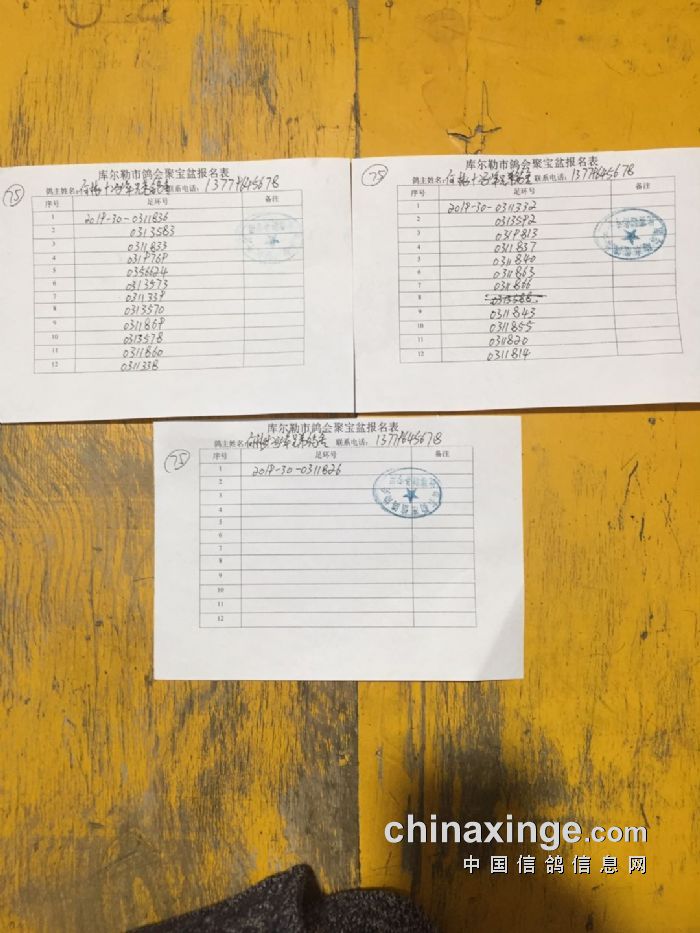 75
库尔勒市鸽会聚宝盆报名表
鸽主姓名: 联系电话: 13779645678
序号 足环号 备注
1 2019-30-0311836
2 0313583
3 0311833
4 0319769
5 0356624
6 0313573
7 0311339
8 0313570
9 0311869
10 0313578
11 0311860
12 0311338
75
库尔勒市鸽会聚宝盆报名表
鸽主姓名: 联系电话: 13779645678
序号 足环号 备注
1 2019-30-0311332
2 0313592
3 0319813
4 0311837
5 0311840
6 0311863
7 0311866
8 0313588
9 0311843
10 0311855
11 0311820
12 0311814
75
库尔勒市鸽会聚宝盆报名表
鸽主姓名: 联系电话: 13779645678
序号 足环号 备注
1 2019-30-0311826
2
3
4
5
6
7
8
9
10
11
12
chinaxinge.com
中国信鸽信息网